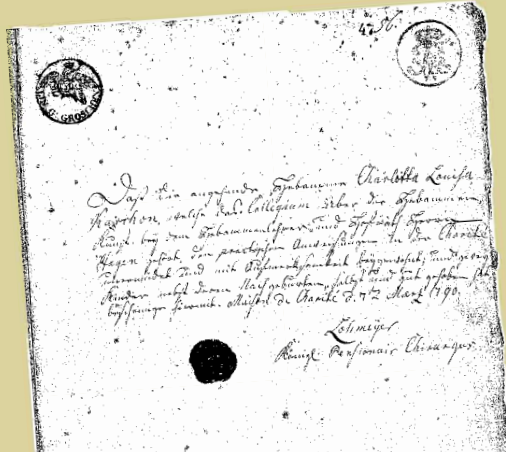 4756.
G. GROSCHEN
Daß die angehende Hebamme Charlotta Louisa
welche das Collegium über die Hebammen
Kunst bey dem Hebammenlehrer und Hofrath Herrn
Hagen nebst den practischen Anweisungen in der Charité
und mit Aufmerksamkeit beygewohnt, und
Kinder nebst deren Nachgeburthen selbst und gut gehoben hat
bescheinige hiermit. Maison de Charité d. 2 Mart 1790.
Königl Pensionair Chirurgus